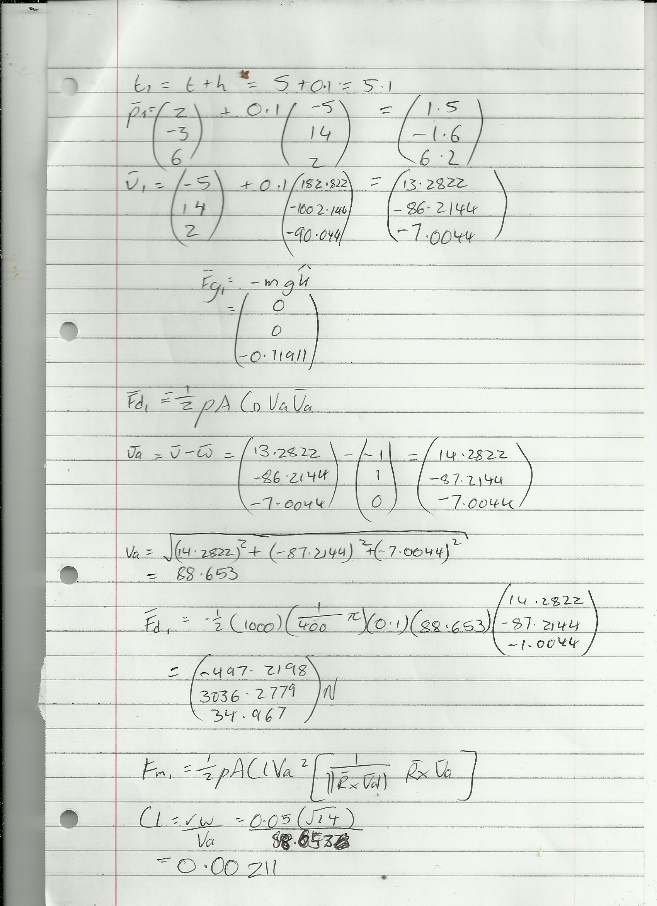 t₁ = t + h = 5 + 0.1 = 5.1
p̄₁ = (2, -3, 6) + 0.1 (-5, 14, 2) = (1.5, -1.6, 6.2)
v̄₁ = (-5, 14, 2) + 0.1 (182.822, -1002.144, -90.044) = (13.2822, -86.2144, -7.0044)
F̄g₁ = -mgk̂
= (0, 0, -0.11911)
F̄d₁ = ½ρA CD Va V̄a
V̄a = v̄ - ω̄ = (13.2822, -86.2144, -7.0044) - (-1, 1, 0) = (14.2822, -87.2144, -7.0044)
Va = √((14.2822)² + (-87.2144)² + (-7.0044)²)
= 88.653
F̄d₁ = -½ (1000) (1/400 π) (0.1) (88.653) (14.2822, -87.2144, -1.0044)
= (-497.2198, 3036.2779, 34.967) N
Fm₁ = ½ρACl Va² [1/||R̄ x V̄a|| R̄ x V̄a]
Cl = rw/Va = 0.05(√14)/88.6536
= 0.00211